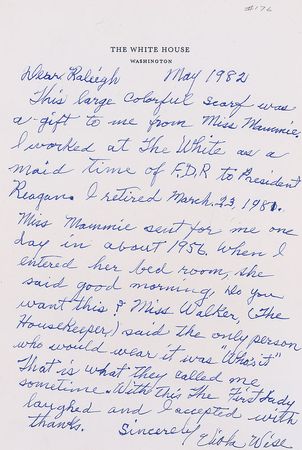 #176
THE WHITE HOUSE
WASHINGTON
Dear Raleigh May 1982
This large colorful scarf was
a gift to me from Miss Mammie.
I worked at The White as a
maid time of F.D.R to President
Reagan. I retired March.23.1981.
Miss Mammie sent for me one
day in about 1956. When I
entered her bed room, she
said good morning, do you
want this? Miss Walker, (The
Housekeeper) said the only person
who would wear it was "Whos it"
That is what they called me
sometime. With this The First Lady
laughed and I accepted with
thanks. Sincerely